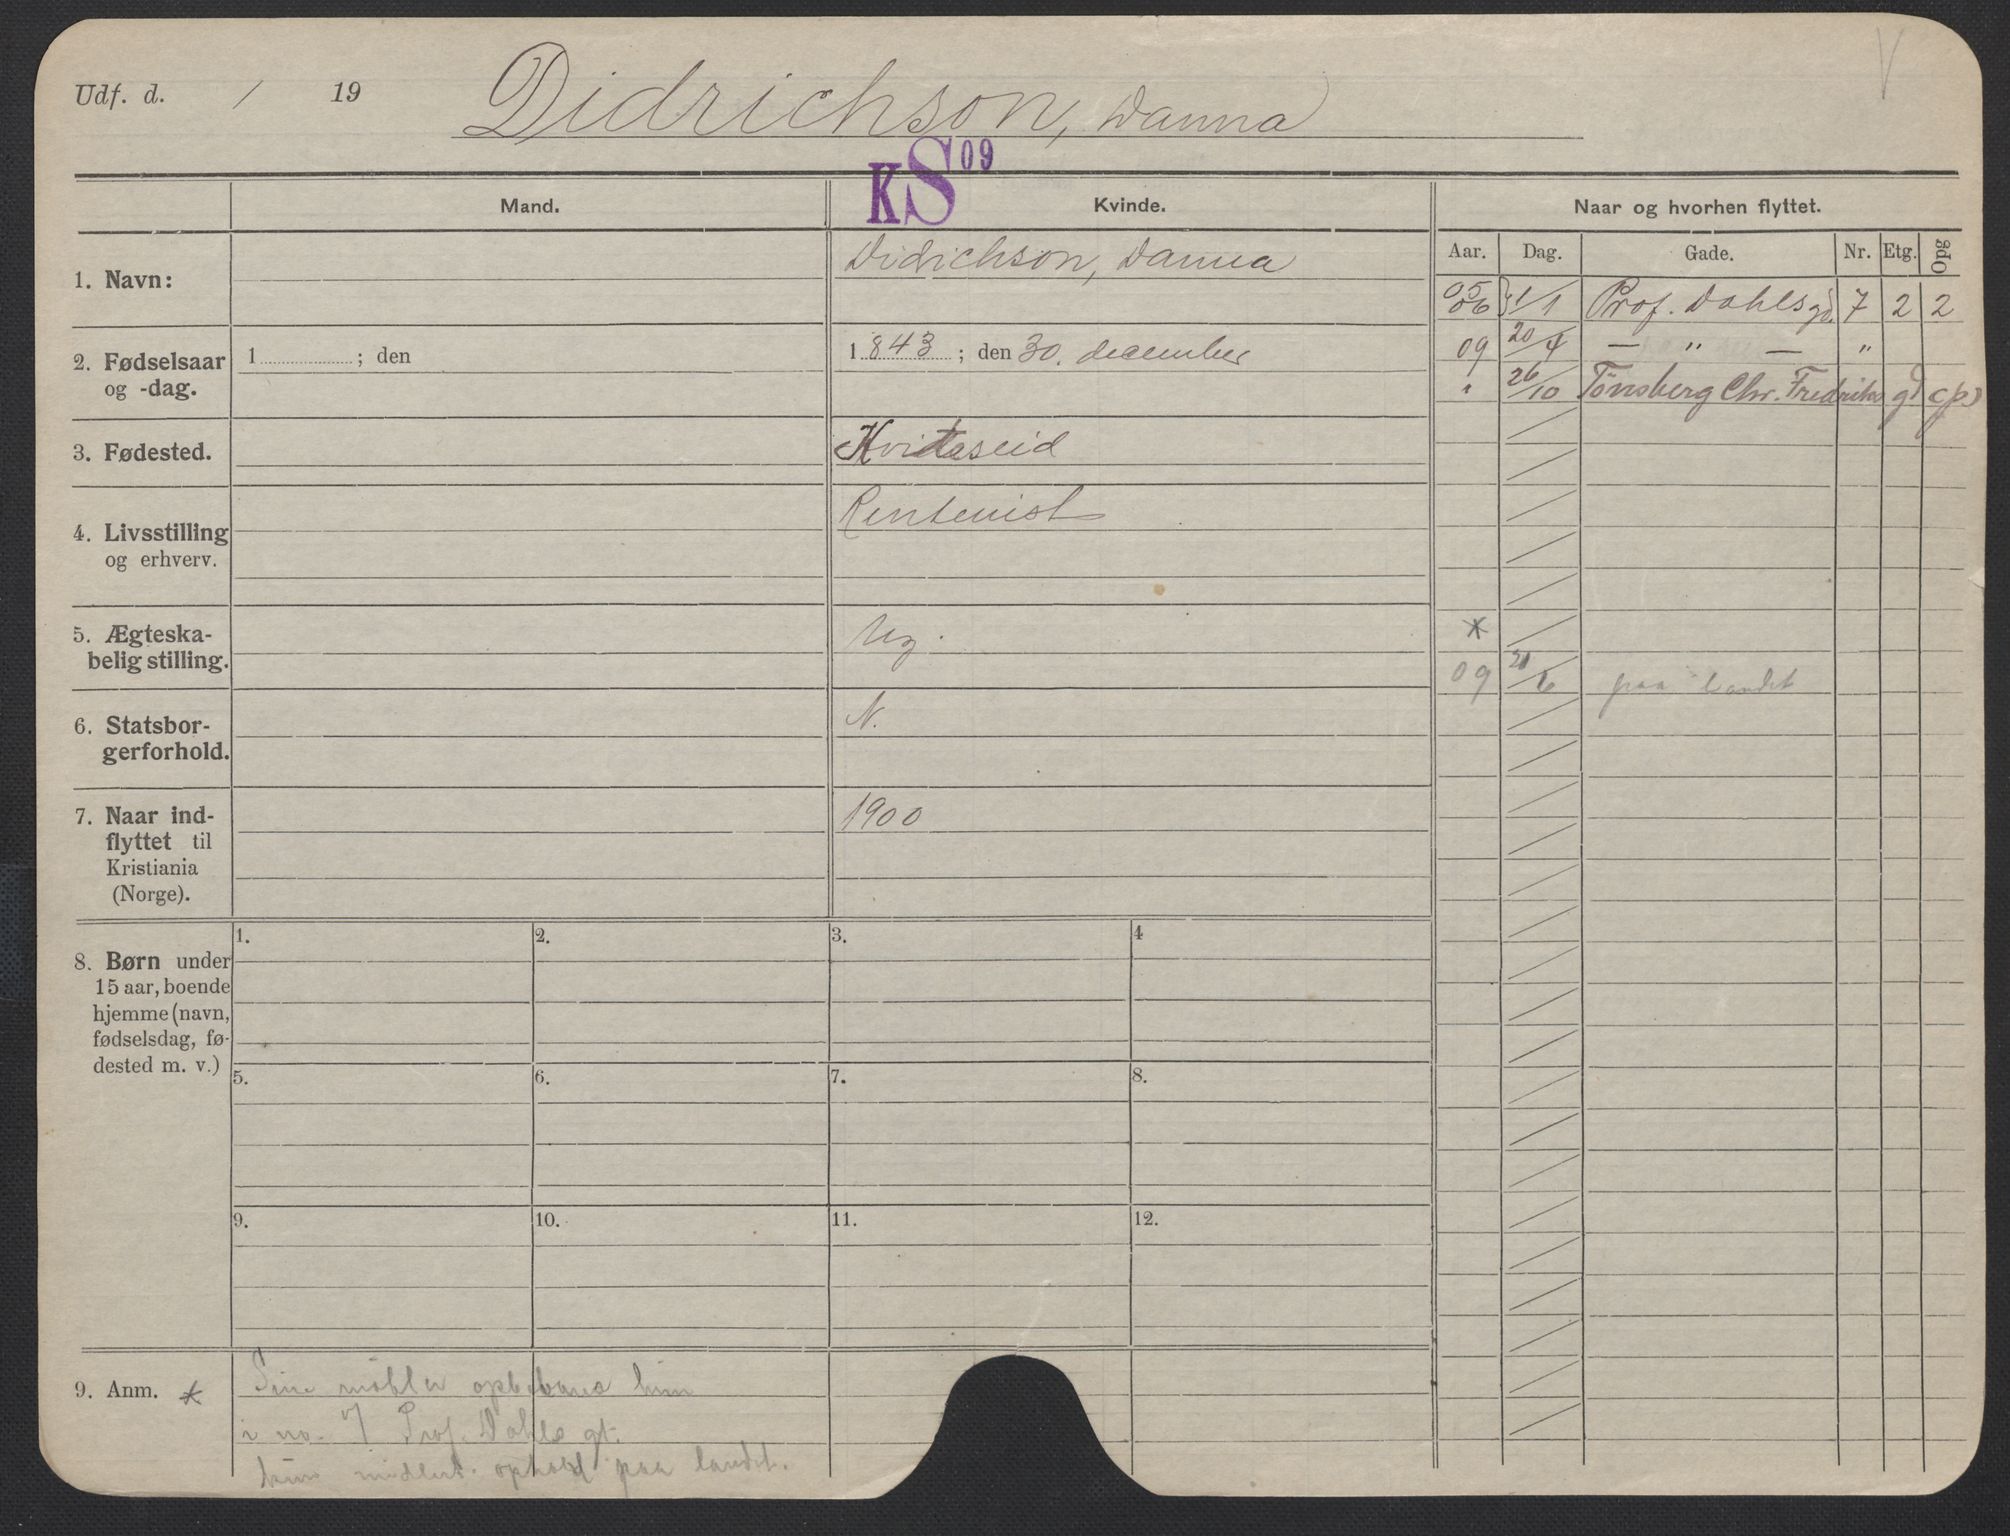 Udf. d. / 19 Didrichson, Danna
KS09
Mand.
Kvinde.
Naar og hvorhen flyttet.
Aar. Dag. Gade. Nr. Etg. Opg
1. Navn:
Didrichson, Danna
2. Fødselsaar
og -dag.
1 ; den
1843 ; den 30. december
3. Fødested.
Kviteseid
4. Livsstilling
og erhverv.
Rentenist
5. Ægteska-
belig stilling.
Ug.
6. Statsbor-
gerforhold.
N.
7. Naar ind-
flyttet til
Kristiania
(Norge).
1900
05
06 } 1/1 Prof. Dahlsgd. 7 2 2
09 20/4 — „ — „
„ 26/10 Tønsberg Chr. Fredriks gd
*
09 21/6 paa landet
8. Børn under
15 aar, boende
hjemme (navn,
fødselsdag, fø-
dested m. v.)
1. 2. 3. 4
5. 6. 7. 8.
9. 10. 11. 12.
9. Anm. *
Sine møbler opbevares hun
i no. 7 Prof. Dahls gt.
kun midlert. ophold paa landet.